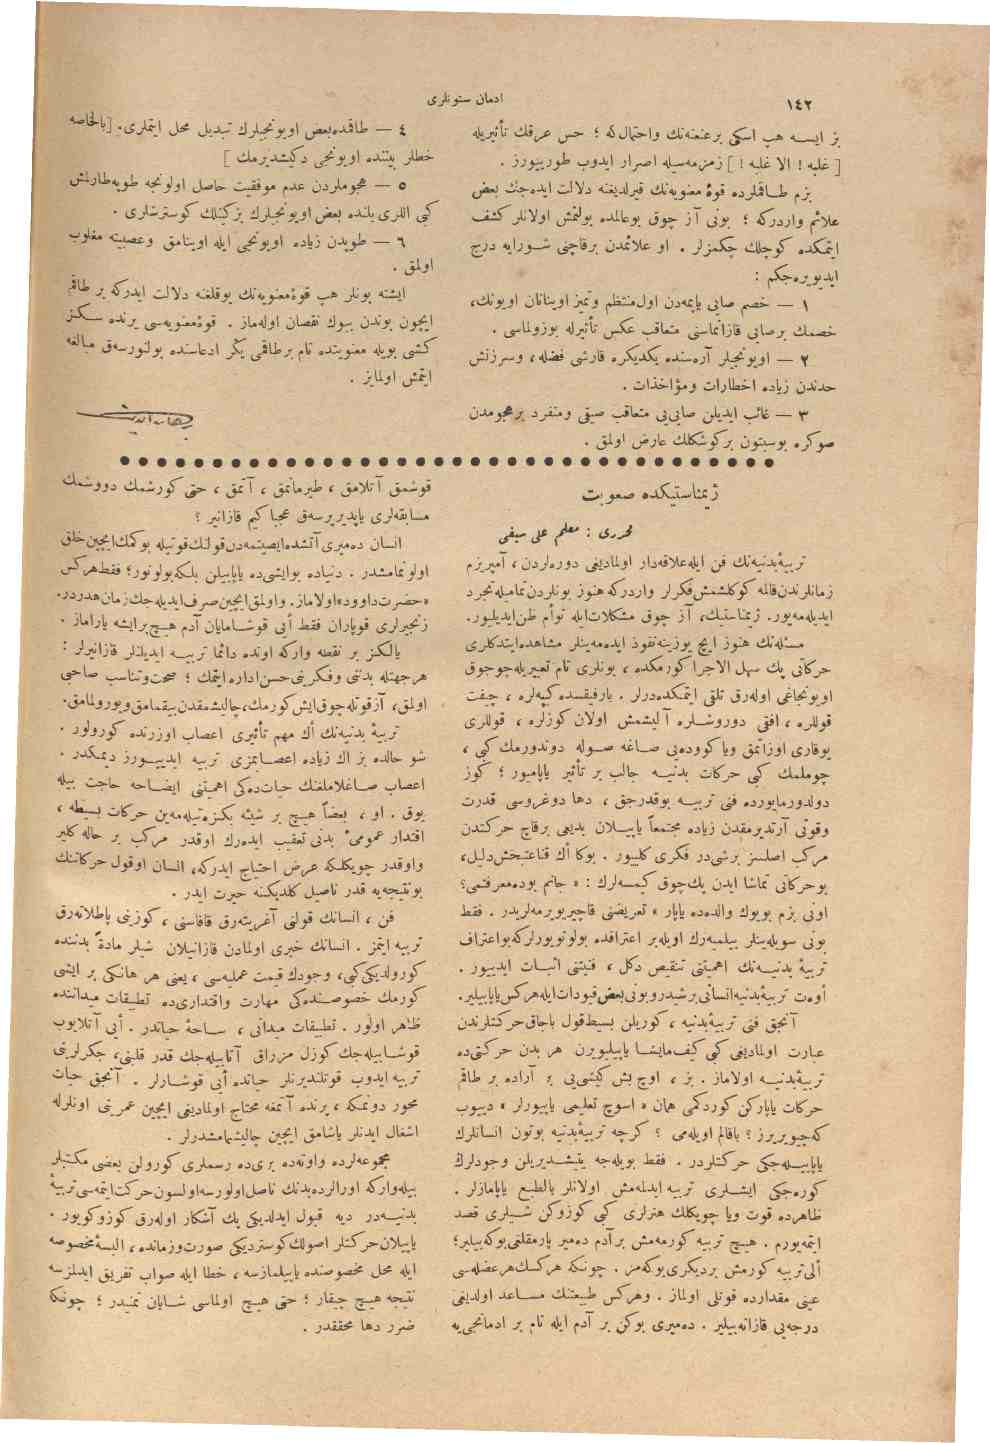 ١٤٢
ادمان ستونلری
بز ایسه هپ اسکی برعنعنه‌نك واحتمال‌که ؛ حس عرقك تأثیریله
[ غلبه ! الا غلبه ! ] زمزمه‌سیله اصرار ایدوب طوریپورز .
بزم طاقملرده قوهٔ معنویه‌نك قیرلدیغنه دلالت ایده‌جك بعض
علائم واردرکه ؛ بونی آز چوق بوعالمده بولنمش اولانلر کشف
ایتمکده کوچلك چکمزلر . او علائمدن برقاچنی شورایه درج
ایدیویره‌جکم :
١ — خصم صایی یاپمه‌دن اول‌منتظم وتمیز اوینانان اویونك،
خصمك برصایی قازانماسنی متعاقب عکس تأثیرله بوزولماسی .
٢ — اویونجیلر آره‌سنده یکدیکره قارشی فضله، وسرزنش
حددن زیاده اخطارات ومؤاخذات .
٣ — غائب ایدیلن صایی‌یی متعاقب صیقی ومنفرد برهجومدن
صوکره بوسبتون برکوشکلك عارض اولمق .
٤ — طاقمده‌بعض اویونجیلرك تبدیل محل ایتملری. [بالخاصه
خطلر بیننده اویونجی دکیشدیرمك ]
٥ — هجوملردن عدم موفقیت حاصل اولونجه طوپه‌طارلمش
کبی اللری بلنده بعض اویونجیلرك بزکینلك کوسترشلری .
٦ — طوپدن زیاده اویونجی ایله اوینامق وعصبیته مغلوب
اولمق .
ایشته بونلر هپ قوهٔ‌معنویه‌نك یوقلغنه دلالت ایدرکه بر طاقم
ایچون بوندن بیوك نقصان اوله‌ماز . قوهٔ‌معنویه‌سی یرنده سکز
کشی بویله معنویتده تام برطاقمی یکر ادعاسنده بولنورسه‌ق مبالغه
ایتمش اولمایز .
ژیمناستیکده صعوبت
محرری : معلم علی سیفی
تربیهٔ‌بدنیه‌نك فن ایله‌علاقه‌دار اولمادیغی دوره‌لردن ، آمپریزم
زمانلرندن‌قالمه کوکلشمش‌فکرلر واردرکه هنوز بونلردن‌تمامیله‌تجرد
ایدیله‌مه‌یور. ژیمناستیك، آز چوق مشکلات‌ایله توأم ظن‌ایدیلیور.
مسئله‌نك هنوز ایچ یوزینه‌نفوذ ایده‌مه‌ینلر مشاهده‌ایتدکلری
حرکاتی پك سهل الاجرا کورمکده ، بونلری تام تعبیریله‌چوجوق
اویونجاغی اوله‌رق تلقی ایتمکده‌درلر . بارفیقسده کیپه‌لره ، چیفت
قوللره ، افقی دوروشلره آلیشمش اولان کوزلره ، قوللری
یوقاری اوزاتمق ویا کووده‌یی صاغه صوله دوندورمك کبی ،
چوملمك کبی حرکات بدنیه جالب بر تأثیر یاپامیور ؛ کوز
دولدورمایورده فنی تربیه بوقدرجق ، دها دوغروسی قدرت
وقوتی آرتدیرمقدن زیاده مجتمعاً یاپیلان بدیعی برقاچ حرکتدن
مرکب اصلسز برشی‌در فکری کلییور . بوکا اك قناعتبخش‌دلیل،
بوحرکاتی تماشا ایدن پك‌چوق کیمسه‌لرك : « جانم بوده‌معرفتمی؟
اونی بزم بویوك والده‌ده یاپار » تعریضنی قاچیریویرمه‌لریدر . فقط
بونی سویله‌ینلر بیلمیه‌رك اویله‌بر اعترافده بولونویورلرکه‌بواعتراف
تربیهٔ بدنیه‌نك اهمیتنی تنقیص دکل ، فنیتنی اثبات ایدییور .
أوه‌ت تربیهٔ‌بدنیه‌انسانی‌برشیدر‌وبونی‌بعض‌قیودات‌ایله‌هرکس‌یاپابیلیر.
آنجق فنی تربیهٔ‌بدنیه ، کوریلن بسیط‌قول باجاق‌حرکتلرندن
عبارت اولمادیغی کبی کیف‌مایشا یاپیلیویرن هر بدن حرکتی‌ده
تربیهٔ‌بدنیه اولاماز . بز ، اوچ بش کیشی‌یی بر آراده بر طاقم
حرکات یاپارکن کوردکمی همان « اسوچ تعلیمی یاپیورلر » دییوب
که‌چیویریرز ؟ باقالم اویله‌می ؟ کرچه تربیهٔ‌بدنیه بوتون انسانلرك
یاپابیله‌جکی حرکتلردر . فقط بویله‌جه یتیشدیریلن وجودلرك
کوره‌جکی ایشلری تربیه ایدلمه‌مش اولانلر بالطبع یاپامازلر .
ظاهرده قوت ویا چویکلك هنرلری کبی کوزوکن شیلری قصد
ایتمه‌یورم . هیچ تربیه کورمه‌مش برآدم ده‌میر پارمقلغی‌بوکه‌بیلیر؛
ألی‌تربیه کورمش بردیکری‌بوکه‌مز. چونکه هرکسك‌هرعضله‌سی
عینی مقدارده قوتلی اولماز . وهرکس طبیعتك مساعد اولدیغی
درجه‌یی قازانه‌بیلیر . ده‌میری بوکن بر آدم ایله تام بر ادمانجی‌یه
قوشمق آتلامق ، طیرمانمق ، آتمق ، حتی کورشمك دووشمك
مسابقه‌لری یاپدیریرسه‌ق عجبا کیم قازانیر ؟
انسان ده‌میری آتشده‌ایصیتمه‌دن‌قولنك‌قوتیله بوکمك‌ایچین‌خلق
اولونمامشدر . دنیاده بوایشی‌ده یاپابیلن بلکه‌بولونور؛ فقط‌هرکس
«حضرت‌داوود»اولاماز. واولمق‌ایچین‌صرف‌ایدیله‌جك‌زمان‌هدردر.
زنجیرلری قوپاران فقط أیی قوشامایان آدم هیچ‌برایشه یاراماز .
یالکز بر نقطه وارکه اونده دائما تربیه ایدیلنلر قازانیرلر :
هرجهتله بدنی وفکری‌حسن‌اداره ایتمك ؛ صحت‌وتناسب صاحبی
اولمق، آزقوتله‌چوق‌ایش‌کورمك،چالیشمقدن‌بیقمامق‌ویورولمامق.
تربیهٔ بدنیه‌نك أك مهم تأثیری اعصاب اوزرنده کورولور .
شو حالده بز اك زیاده اعصابمزی تربیه ایدییورز دیمکدر .
اعصاب صاغلاملغنك حیات‌ده‌کی اهمیتنی ایضاحه حاجت بیله
یوق . او ، بعضاً هیچ بر شیئه بکزه‌تیله‌مه‌ین حرکات بسیطه ،
اقتدار عمومیٔ بدنی تعقیب ایده‌رك اوقدر مرکب بر حاله کلیر
واوقدر چویکلکه عرض احتیاج ایدرکه، انسان اوقول حرکاتنك
بونتیجه‌یه قدر ناصیل کلدیکنه حیرت ایدر .
فن ، انسانك قولنی آغریته‌رق قافاسنی ، کوزینی پاطلاته‌رق
تربیه ایتمز . انسانك خبری اولمادن قازانیلان شیلر مادةً بدننده
کورولدیکی‌کبی، وجودك قیمت عملیه‌سی ، یعنی هر هانکی بر ایشی
کورمك خصوصنده‌کی مهارت واقتداری‌ده تطبیقات میداننده
ظاهر اولور . تطبیقات میدانی ، ساحهٔ حیاتدر . أیی آتلایوب
قوشابیله‌جك کوزل مزراق آتابیله‌جك قدر قلبنی، جکرلرینی
تربیه ایدوب قوتلندیرنلر حیاتده أیی قوشارلر . آنجق حیات
محور دونمکه ، یرنده آتمغه محتاج اولمادیغی ایچین عمرینی اونلرله
اشغال ایدنلر یاشامق ایچین چالیشمامشدرلر .
مجموعه‌لرده واوته‌ده بری‌ده رسملری کورولن بعضی مکتبلر
بیله‌وارکه اورالرده‌بدنك ناصل‌اولورسه‌اولسون‌حرکت‌ایتمه‌سی‌تربیهٔ
بدنیه‌در دیه قبول ایدلدیکی پك آشکار اوله‌رق کوزوکویور .
یاپیلان‌حرکتلر اصولك‌کوستردیکی صورت‌وزمانده، البسهٔ‌مخصوصه
ایله محل مخصوصنده یاپیلمازسه ، خطا ایله صواب تفریق ایدلمزسه
نتیجه هیچ چیقار ؛ حتی هیچ اولماسی شایان تمنیدر ؛ چونکه
ضرر دها محققدر .